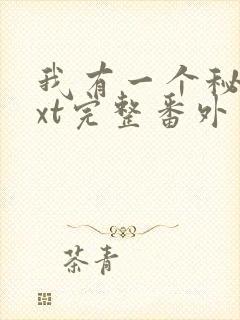 我有一个秘
xt完整番外
茶青